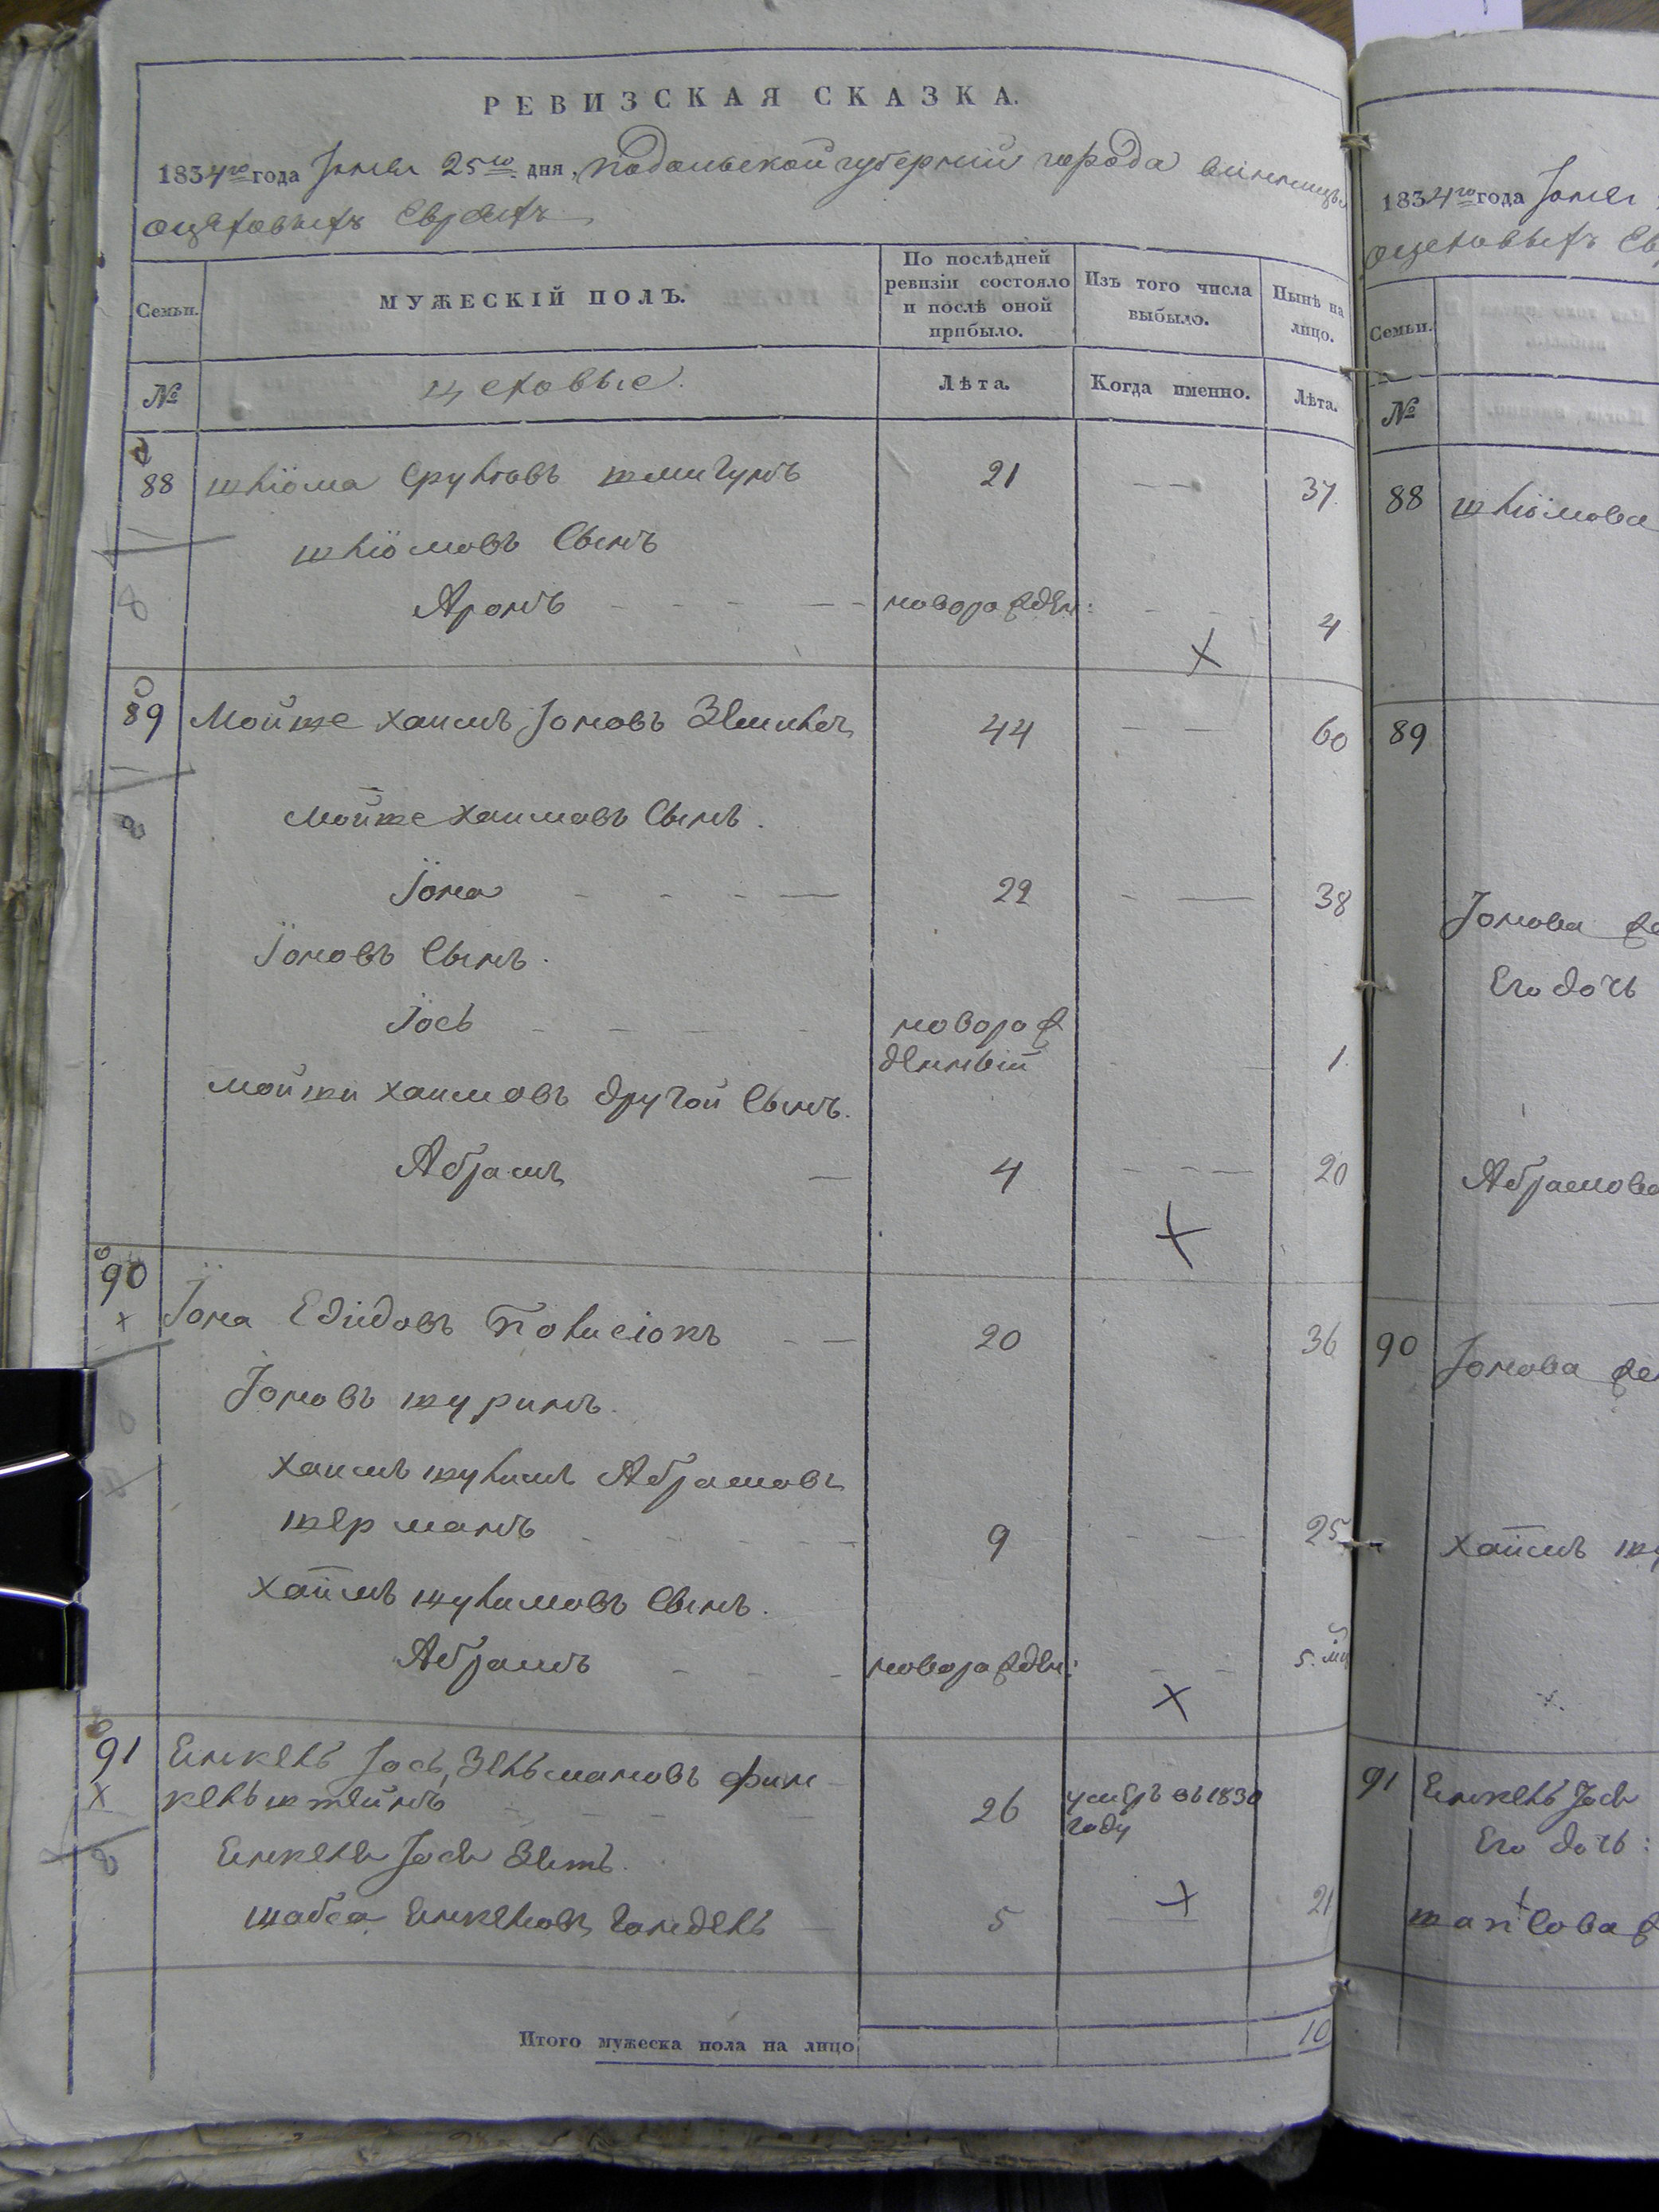 РЕВИЗСКАЯ СКАЗКА.
1834го года Іюня 25го дня, Подольской губерніи города Винницы
о цеховыхъ Евреяхъ
Семьи.
МУЖЕСКІЙ ПОЛЪ.
По послѣдней ревизіи состояло и послѣ оной прибыло.
Изъ того числа выбыло.
Нынѣ на лицо.
№
цеховые.
Лѣта.
Когда именно.
Лѣта.
88 Шліома Сруловъ 21 — — 37
Шліомовъ Сынъ
Аронъ — — — — новорожден: — — 4
89 Мойше Хаимъ Іоновъ 44 — — 60
Мойше Хаимовъ Сынъ.
Іона — — — — 22 — — 38
Іоновъ Сынъ.
Іось — — — — новорож
денный — 1.
Мойши Хаимовъ другой Сынъ.
Абрамъ — 4 — — — 20
90 Іона — — 20 36
Іоновъ шуринъ.
Хаимъ Шулимъ Абрамовъ
Шерманъ — — — — 9 — — 25
Хаимъ Шулимовъ Сынъ.
Абрамъ — — — новорожден: — — 5. мц
91 Янкель Іось Зельмановъ Фин-
кельштейнъ — — — — 26 умеръ въ 1830
году
Янкеля Іося Зять.
Шабса Янкелевъ Гандель — 5 — 21
Итого мужеска пола на лицо 10
1834го года Іюня
о цеховыхъ Ев
Семьи.
№
88 Шліомова
89
Іонова же
Его дочь
Абрамова
90 Іонова же
Хаимъ Шу
91 Янкель Іося
Его дочь:
Шапсова ж